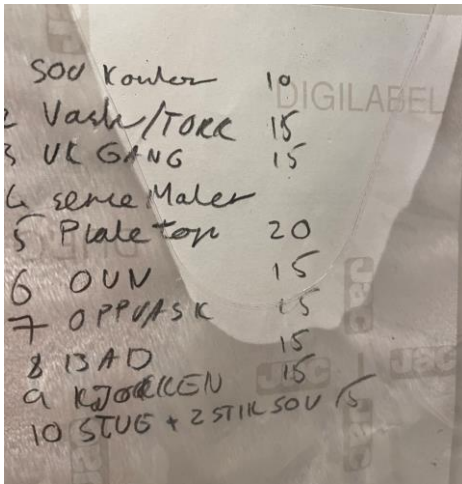 SOV Kontor 10
DIGILABEL
2 Vask/TORK 15
3 UT GANG 15
4 serie Maler
5 Plate topp 20
6 OVN 15
7 OPPVASK 15
8 BAD 15
9 KJØKKEN 15
10 STUE + 2 STIK SOV 15
Jac
Jac
Jac
Jac
Jac